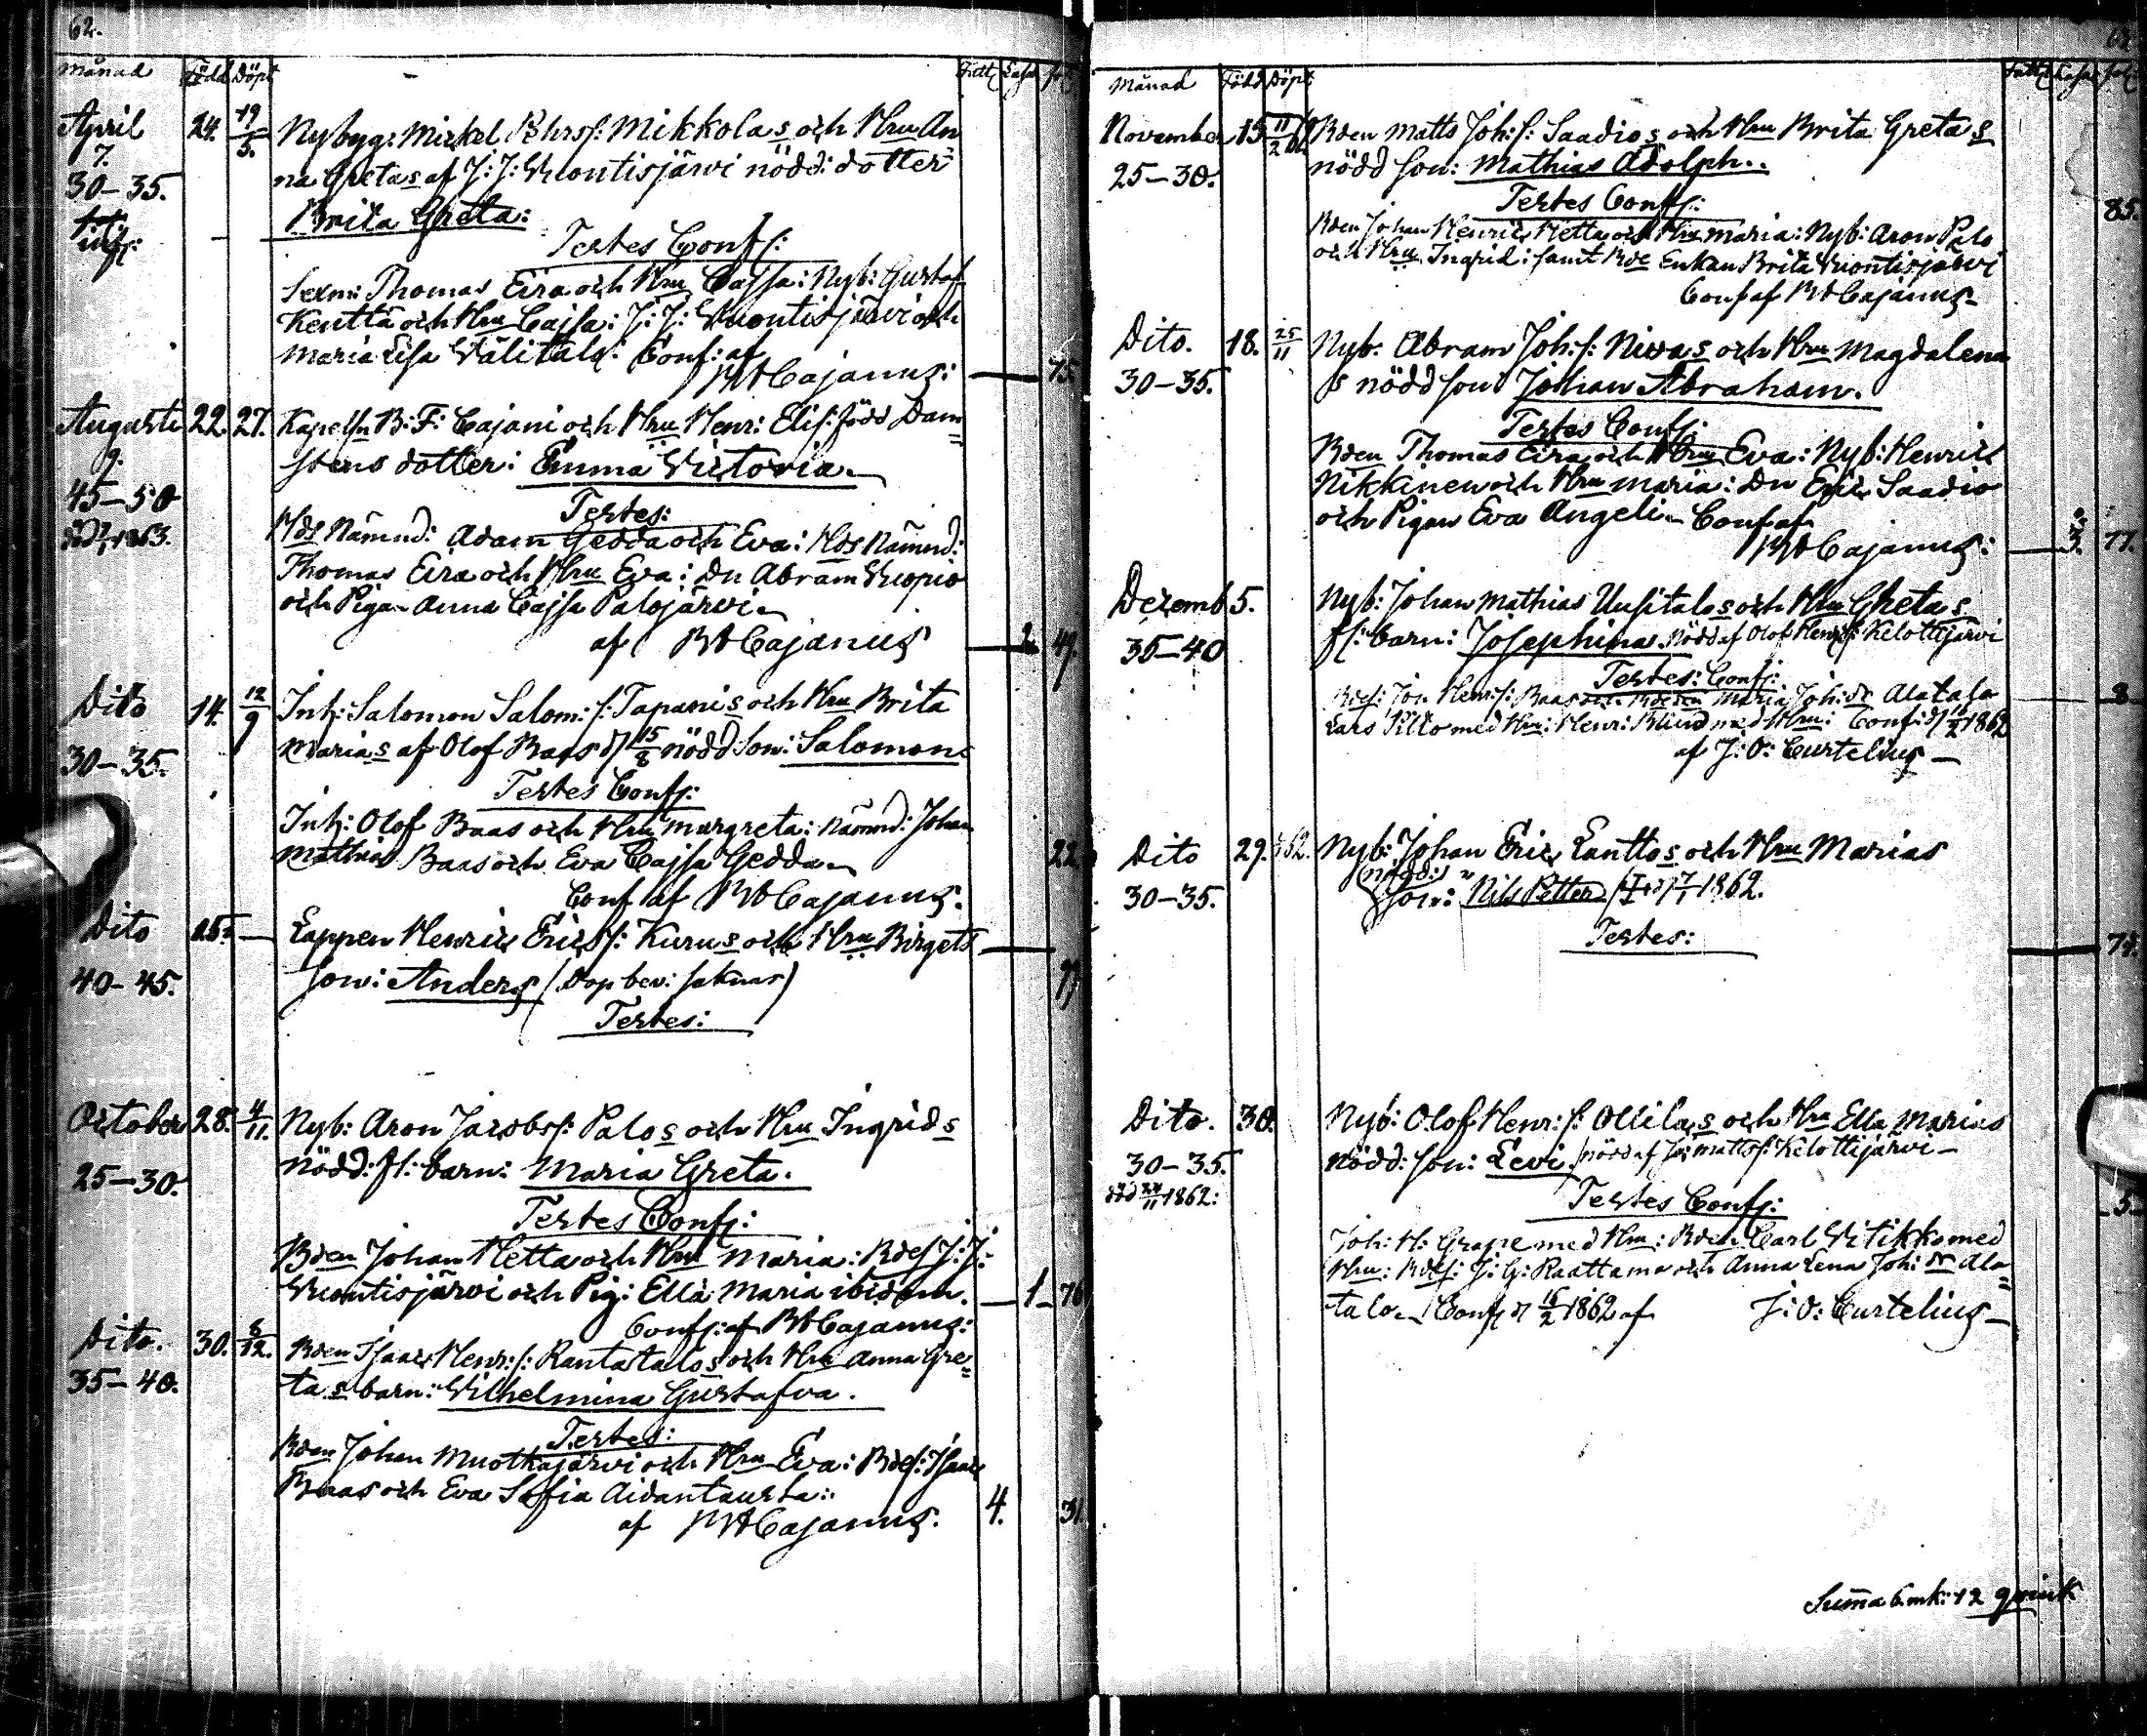 62.
Månad Född Döpt Fatt Cassa fol:
April 24. 19/5. Nybyg: Mickel Pehrs f: Mikkolas och Hru An
7. na Gretas af J: J: Wuontisjärvi nödd: dotter
30–35. Brita Greta:
Testes Conf:
Sexm: Thomas Eira och Hru Cajsa: Nyb: Gustaf
Kenttä och Hru Cajsa: J: J: Wuontisjärvi och
Maria Lisa Välitalo: Conf: af
Cajanus: 75.
Augusti 22. 27. Kapelln B: F: Cajani och Hru Henr: Elis: född Dam=
9. stens dotter: Emma Victoria.
45–50 Testes:
död 1863. Hds Nämnd: Adam Gedda och Eva: Hds Nämnd:
Thomas Eira och Hru Eva: Dn Abram Kuopio
och Pigan Anna Cajsa Palojärvi
af Cajanus 2. 49.
Dito 14. 12/9 Inh: Salomon Salom: f: Tapanis och Hru Brita
30–35. Marias af Olof Baas d 15/8 nödd son: Salomon
Testes Conf:
Inh: Olof Baas och Hru Margreta: Nämnd: Johan
Mathias Baas och Eva Cajsa Gedda 22.
Conf af Cajanus.
Dito 25. — Lappen Henric Erics f: Kurus och Hru Birgets
40–45. son: Anders (Dop bev: saknas)
Testes:
October 28. 4/11. Nyb: Aron Jacobs f: Palos och Hru Ingrids
25–30. nödd: fl: barn: Maria Greta.
Testes Conf:
Bden Johan Hetta och Hru Maria: Bdes J: J:
Wuontisjärvi och Pig: Ella Maria ibidem. 1 76
Conf: af Cajanus:
Dito. 30. 8/12. Bden Isaac Henr: f: Rantatalos och Hru Anna Gre=
35–40. tas barn: Wilhelmina Gustafva.
Testes:
Bden Johan Muotkajärvi och Hru Eva: Bdes: Isaac
Baas och Eva Sofia Aidantausta:
af Cajanus. 4. 31.
63.
Månad Född Döpt Fatt Cassa fol:
November 15 11/2 62 Bden Matts Joh: f: Saadios och Hru Brita Gretas
25–30. nödd son: Mathias Adolph.
Testes Conf: 85.
Bden Johan Henric Hetta och Hru Maria: Nyb: Aron Palo
och Hru Ingrid: samt Bde Enkan Brita Wuontisjärvi
Conf af Cajanus
Dito. 18. 25/11 Nyb. Abram Joh: f: Niwas och Hru Magdalena
30–35. s nödd son Johan Abraham.
Testes Conf:
Bden Thomas Eira och Hru Eva: Nyb: Henric
Nikkinen och Hru Maria: Dn Eric Saadio
och Pigan Eva Angeli. Conf af
Cajanus: 3. 77.
Dezemb 5. Nyb: Johan Mathias Uusitalos och Hru Gretas
35–40 fl: barn: Josephina. nödd af Olof Henr: f: Kelottijärvi
Testes: Conf:
Bdes: Joh Henr: f: Baas och Maria Joh: dr Alatalo 8
Lars med Hru: Henr: Blind med Hru: Conf: d 16/2 1862
af J: O: Curtelius
Dito 29. 862. Nyb: Johan Eric Lanttos och Hru Marias
30–35. (nödd:) son: Nils Petter 1862.
Testes: 74.
Dito. 30. Nyb: Olof Henr: f: Ollilas och Hru Ella Marias
30–35. nödd: son: Levi. nödd af Joh: Matts f: Kelottijärvi
död 24/11 1862: Testes Conf: 5
Joh: H: Grape med Hru: Bden Carl Witikko med
Hru: Bdes: J: G: Raattama och Anna Lena Joh: dr Ala=
talo. Conf d 16/2 1862 af J: O: Curtelius
Summa 6. mk: 12 qvink